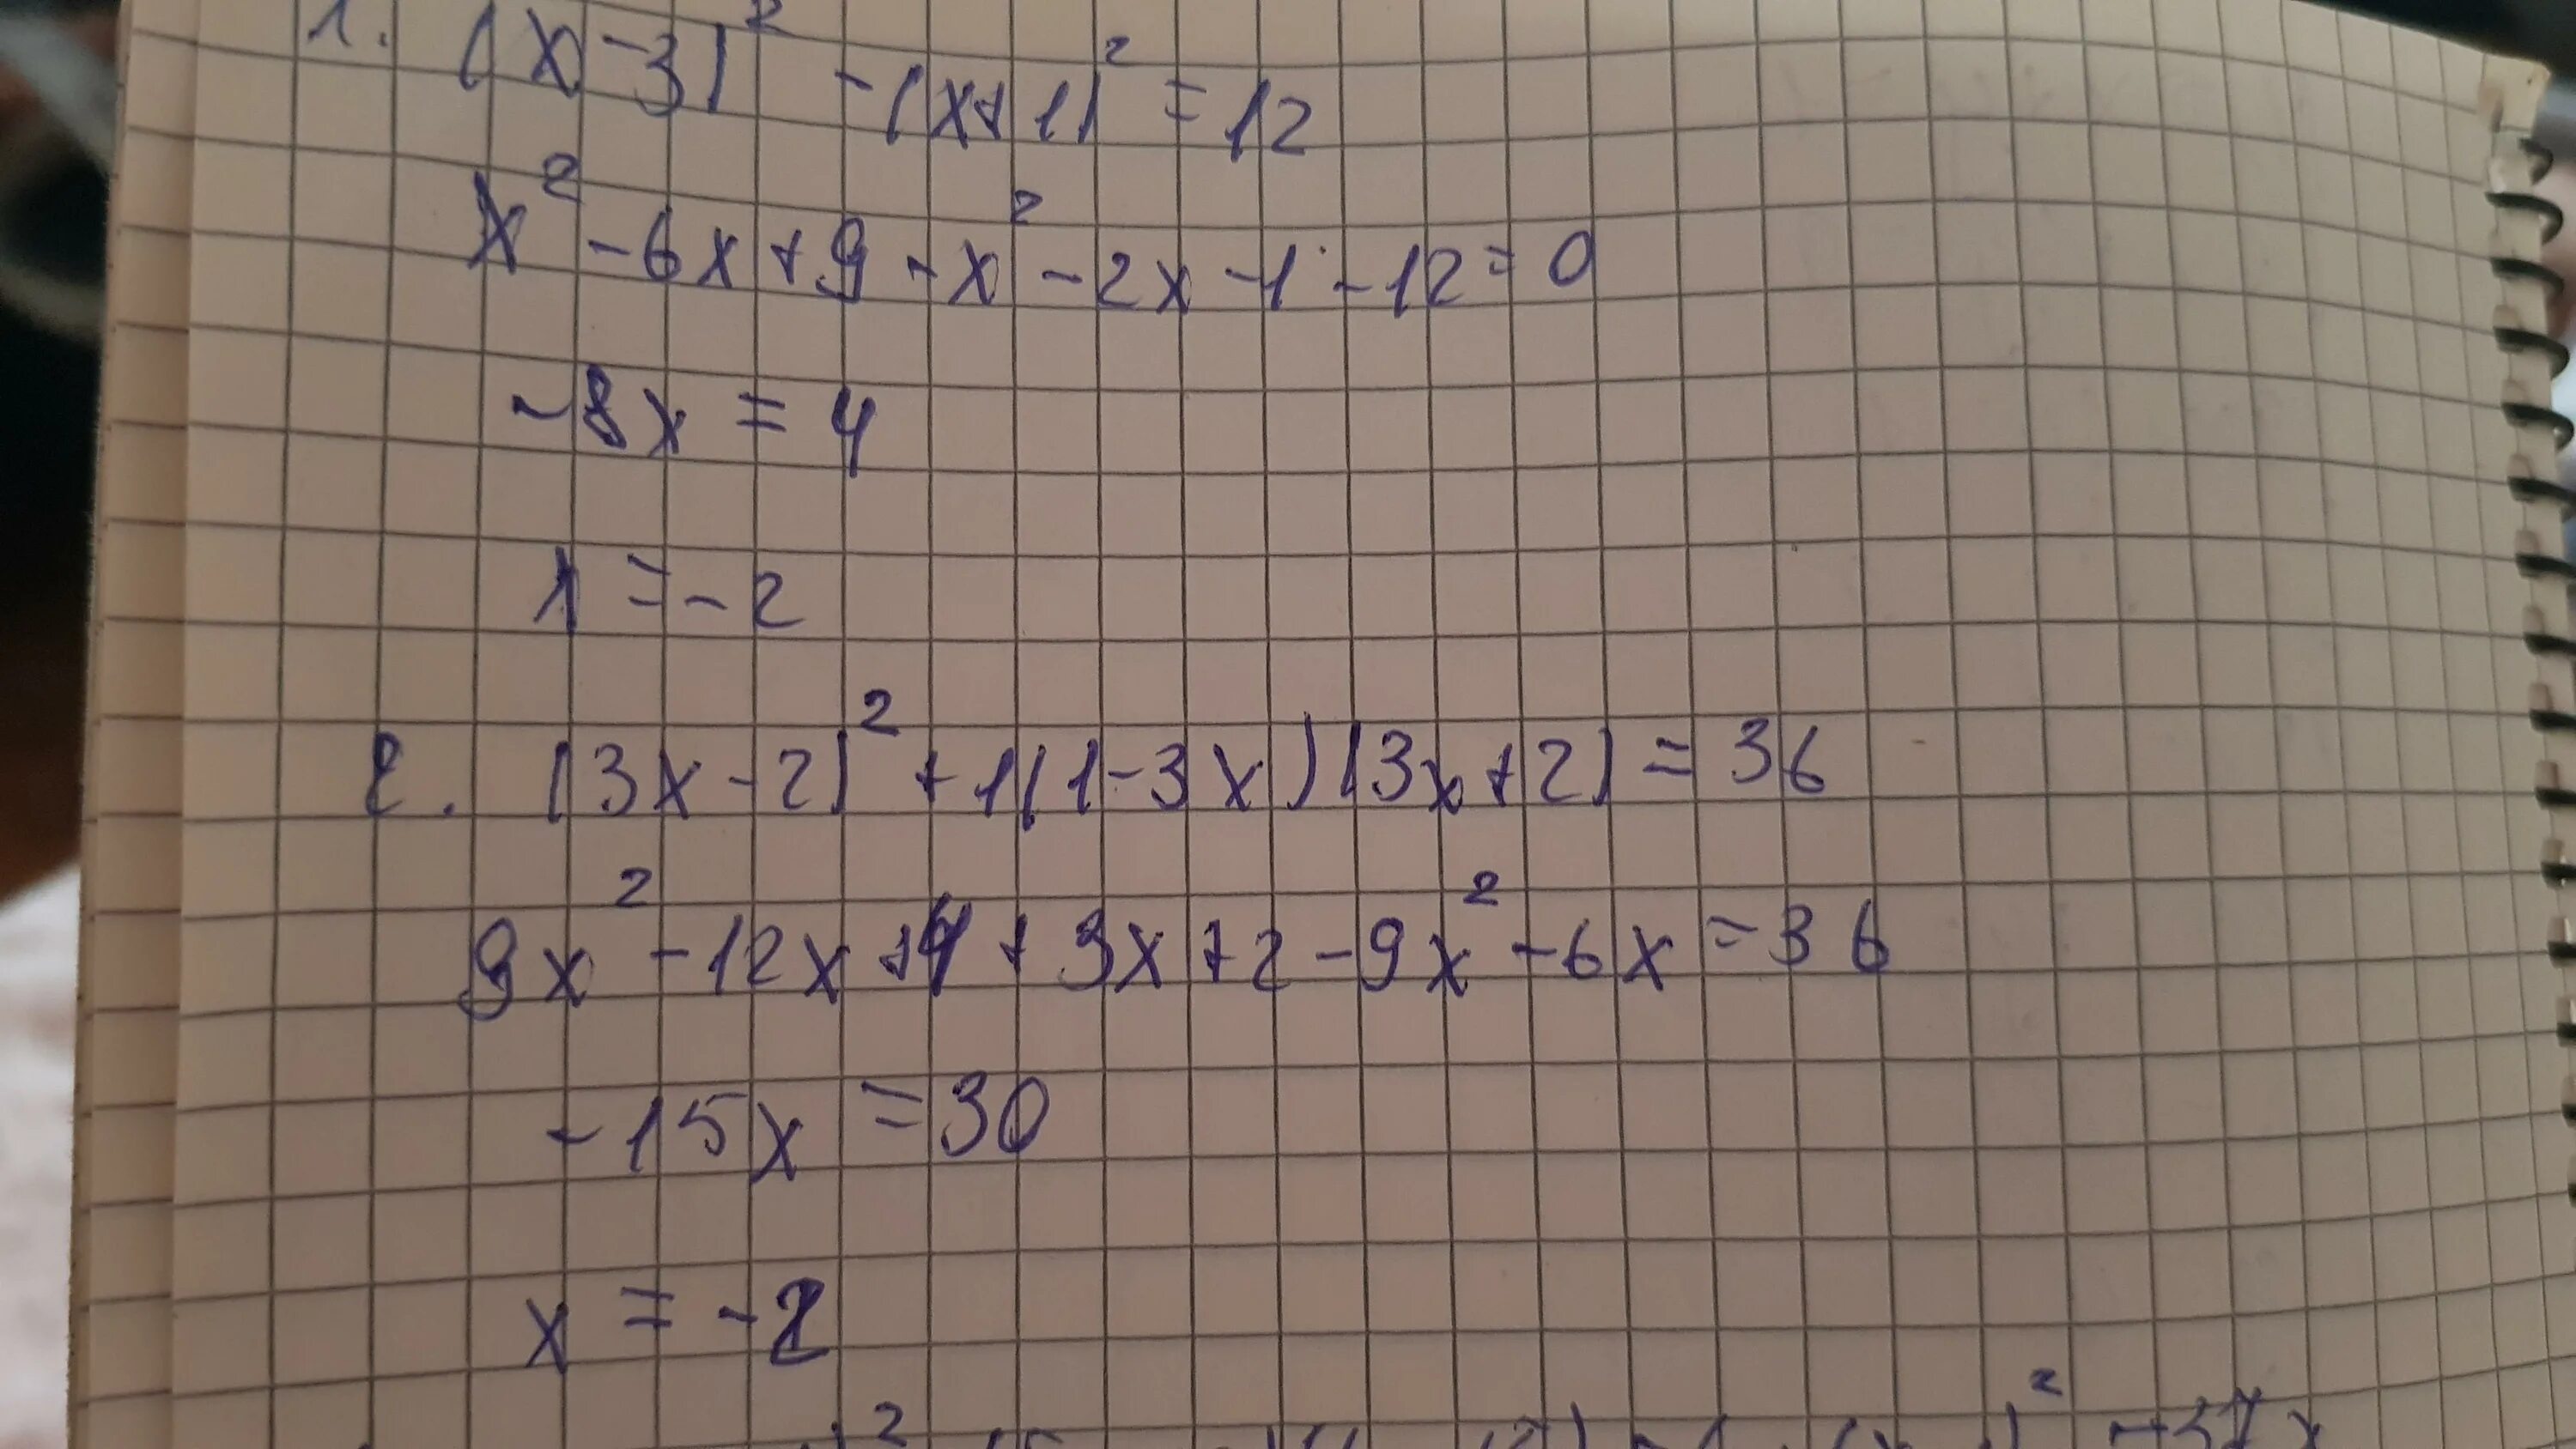 1. (x-3)² - (x+1)² = 12
x² - 6x + 9 - x² - 2x - 1 - 12 = 0
-8x = 4
x = -2
2. (3x-2)² + 1(1-3x)(3x+2) = 36
9x² - 12x + 4 + 3x + 2 - 9x² - 6x = 36
-15x = 30
x = -2